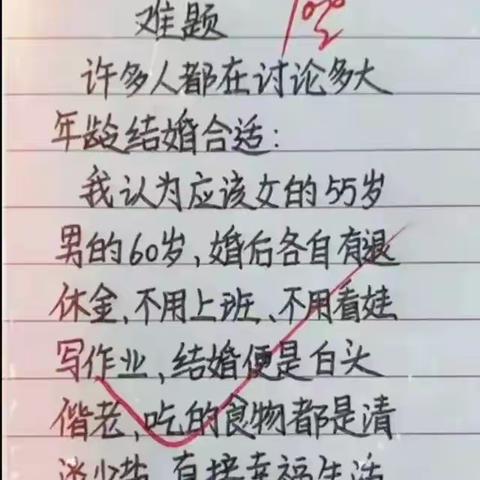 难题
100
许多人都在讨论多大
年龄结婚合适:
我认为应该女的55岁
男的60岁,婚后各自有退
休金、不用上班、不用看娃
写作业,结婚便是白头
偕老,吃的食物都是清
淡少盐,直接幸福生活